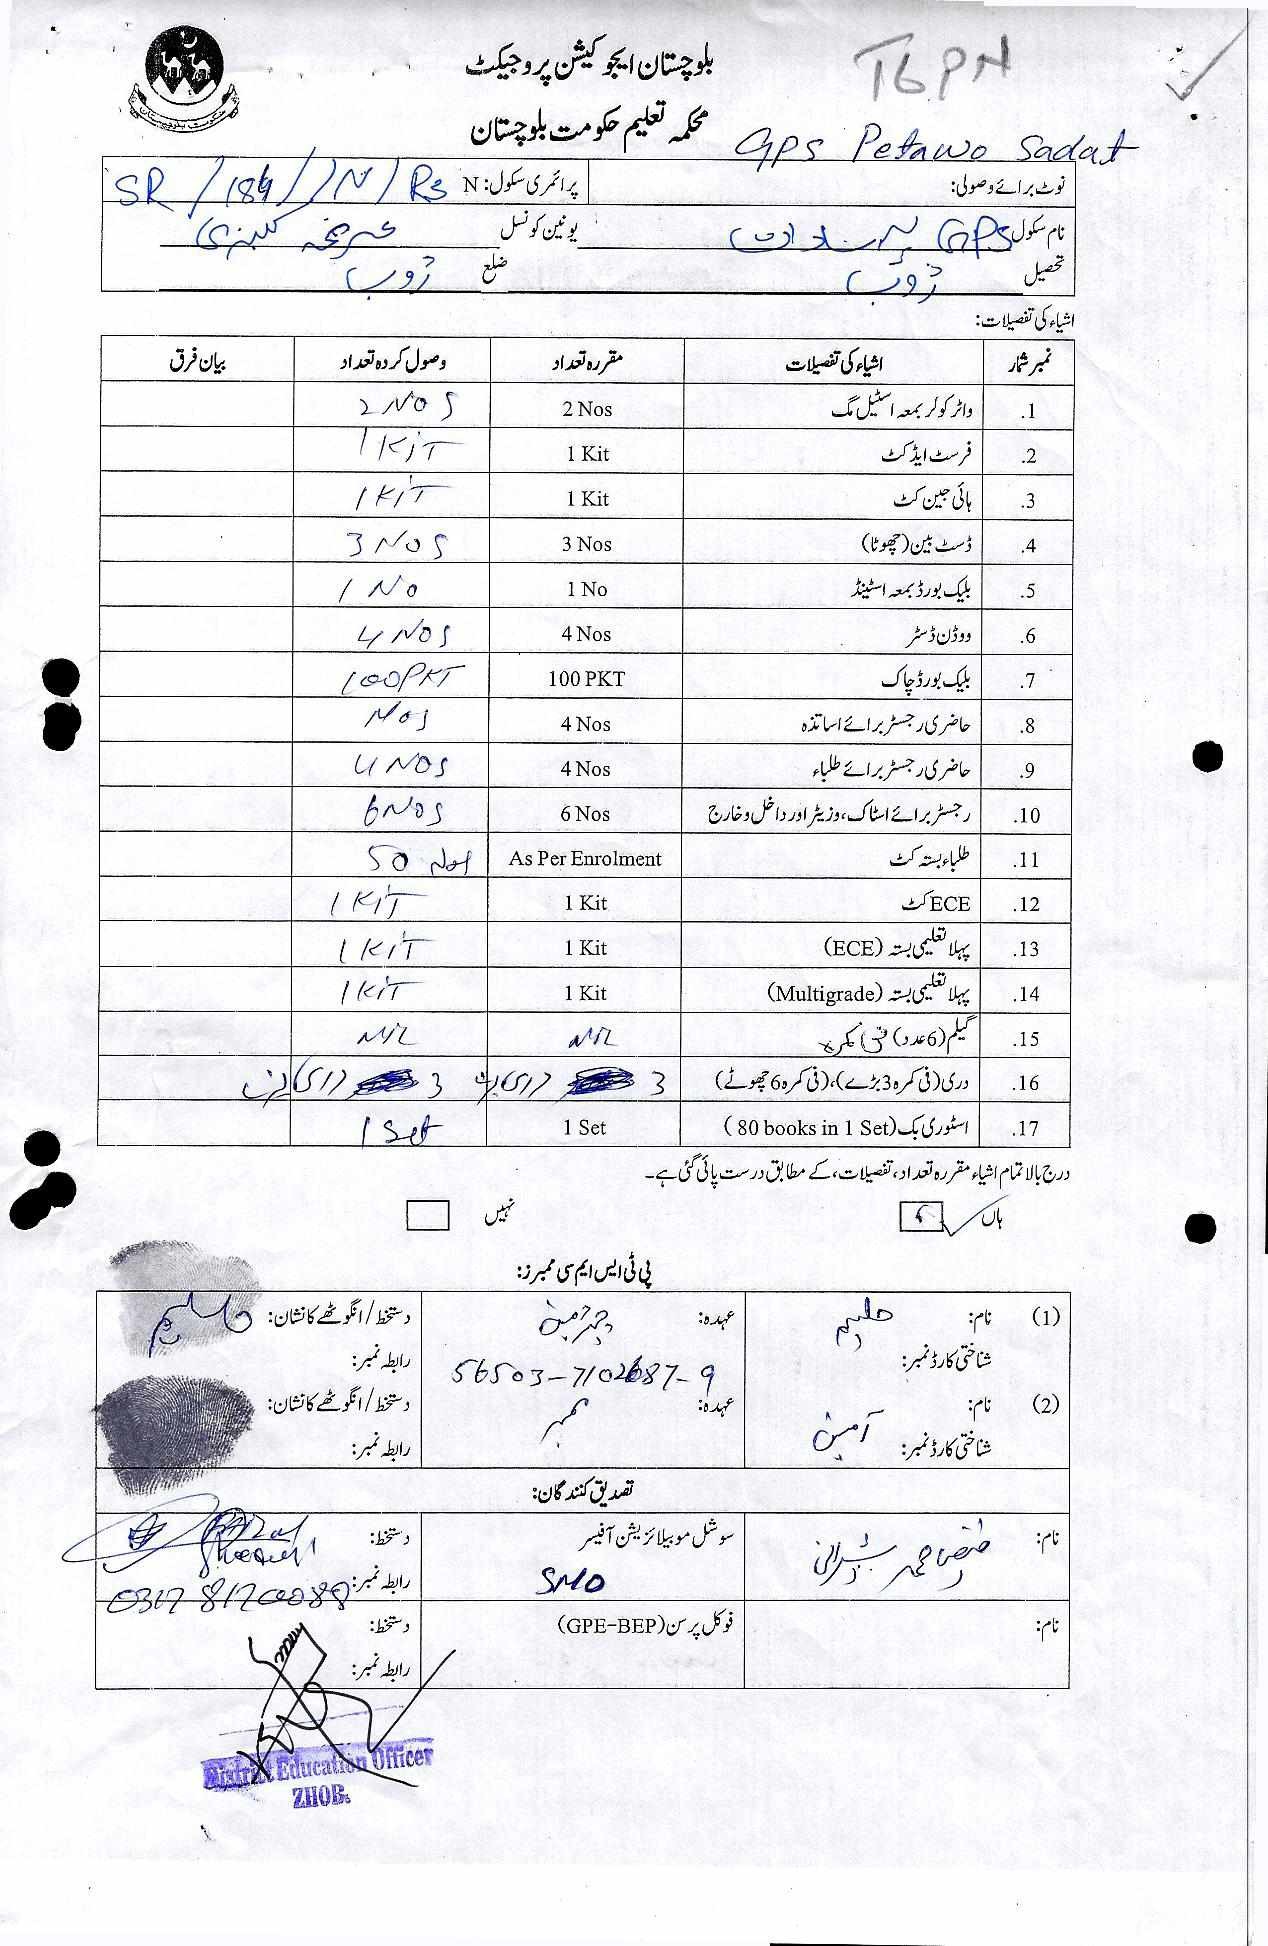 بلوچستان ایجوکیشن پروجیکٹ
TGPN
محکمہ تعلیم حکومت بلوچستان
GPS Petawo Sadat
نوٹ برائے وصولی:
پرائمری سکول: N SR /184/ /N/ R3
نام سکول GPS سادات یونین کونسل
تحصیل ژوب ضلع ژوب
اشیاء کی تفصیلات:
نمبر شمار اشیاء کی تفصیلات مقررہ تعداد وصول کردہ تعداد بیان فرق
1. واٹر کولر بمعہ اسٹیل مگ 2 Nos 2 NOS
2. فرسٹ ایڈ کٹ 1 Kit 1 KIT
3. ہائی جین کٹ 1 Kit 1 KIT
4. ڈسٹ بین (چھوٹا) 3 Nos 3 NOS
5. بلیک بورڈ بمعہ اسٹینڈ 1 No 1 No
6. ووڈن ڈسٹر 4 Nos 4 NOS
7. بلیک بورڈ چاک 100 PKT 100 PKT
8. حاضری رجسٹر برائے اساتذہ 4 Nos NOS
9. حاضری رجسٹر برائے طلباء 4 Nos 4 NOS
10. رجسٹر برائے اسٹاک، وزیٹر اور داخل و خارج 6 Nos 6 NOS
11. طلباء بستہ کٹ As Per Enrolment 50 Nos
12. ECE کٹ 1 Kit 1 KIT
13. پہلا تعلیمی بستہ (ECE) 1 Kit 1 KIT
14. پہلا تعلیمی بستہ (Multigrade) 1 Kit 1 KIT
15. گیلم (6 عدد) فی کمرہ NIL NIL
16. دری (فی کمرہ 3 بڑے)، (فی کمرہ 6 چھوٹے) 3 دری 3 دری
17. اسٹوری بک (80 books in 1 Set) 1 Set 1 Set
درج بالا تمام اشیاء مقررہ تعداد، تفصیلات، کے مطابق درست پائی گئی ہے۔
ہاں نہیں
پی ٹی ایس ایم سی ممبرز:
(1) نام: حلیم عہدہ: چیرمین دستخط/انگوٹھے کا نشان:
شناختی کارڈ نمبر: 56503-7102687-9 رابطہ نمبر:
(2) نام: آمین عہدہ: ممبر دستخط/انگوٹھے کا نشان:
شناختی کارڈ نمبر: رابطہ نمبر:
تصدیق کنندگان:
نام: محمد شیرانی سوشل موبیلائزیشن آفیسر دستخط:
SMO رابطہ نمبر:
نام: فوکل پرسن (GPE-BEP) دستخط:
رابطہ نمبر:
District Education Officer
ZHOB.